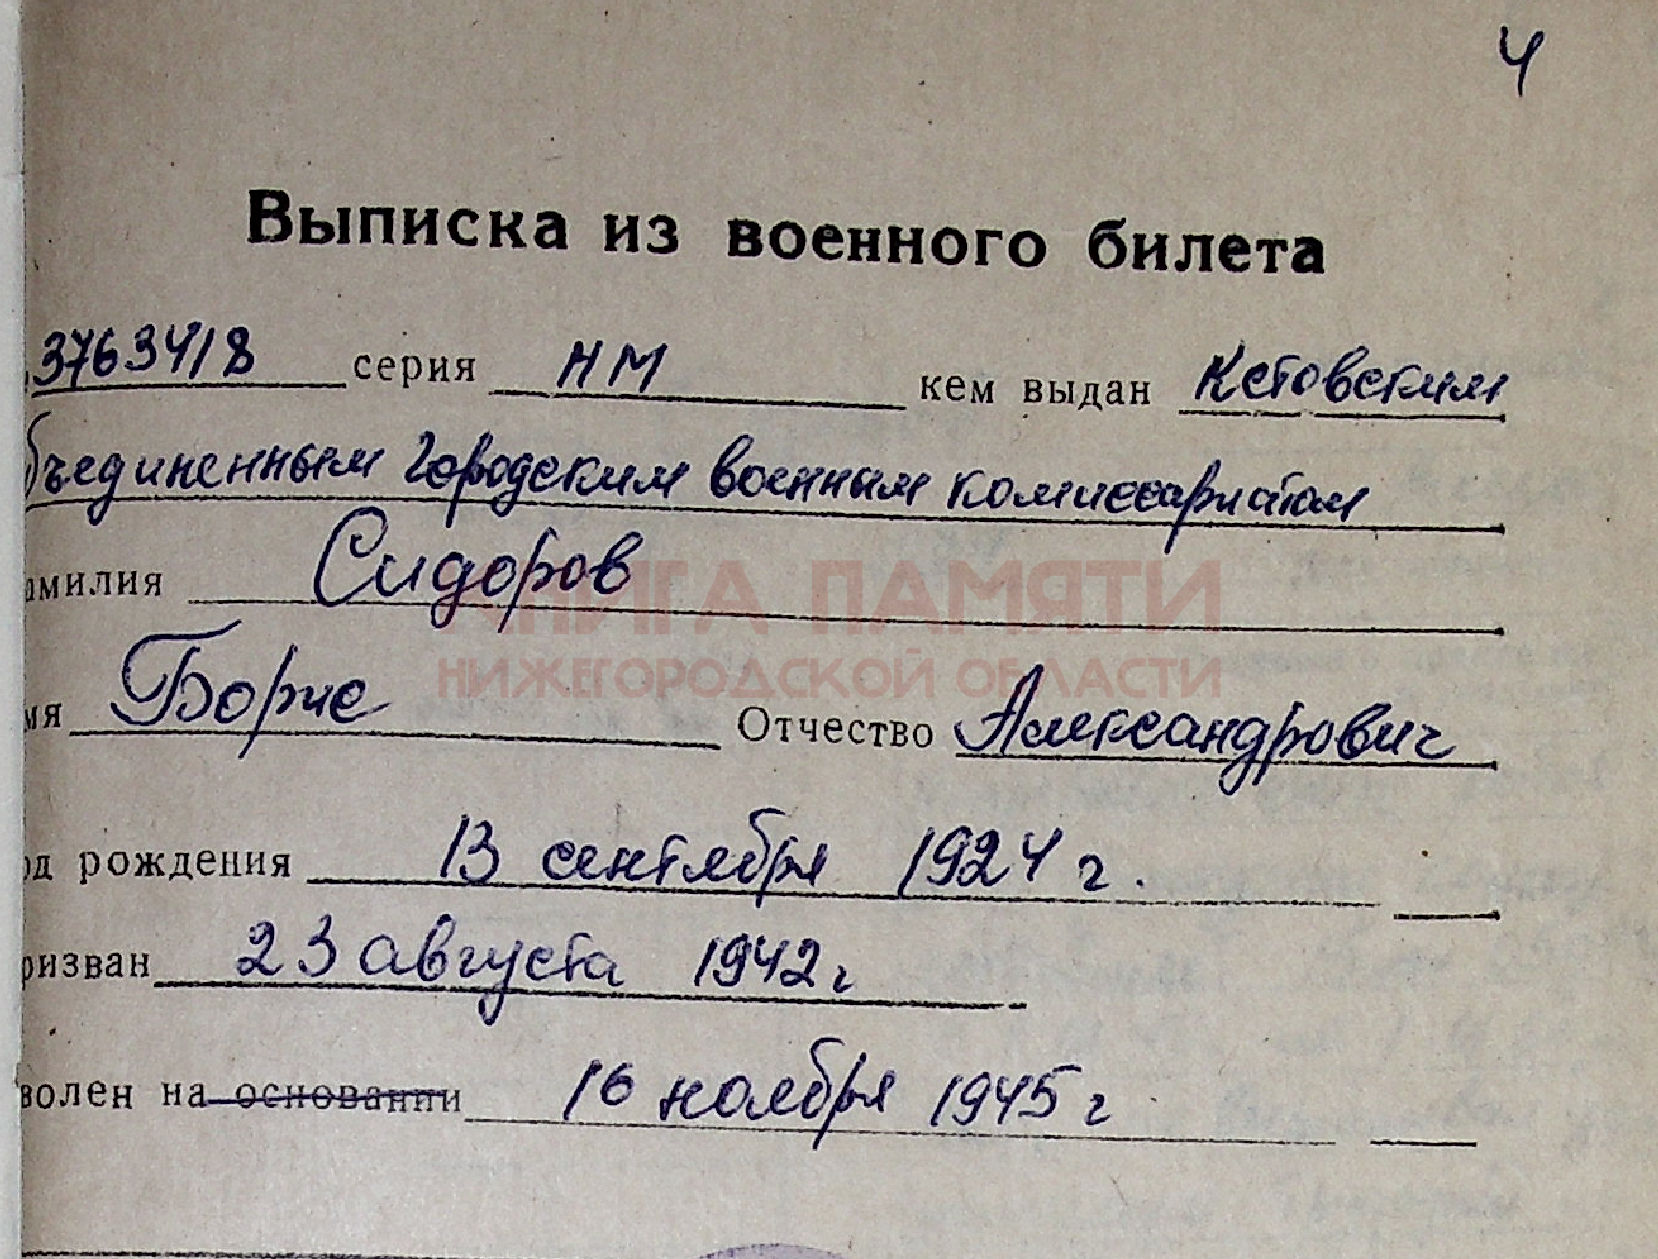 4
Выписка из военного билета
3763418 серия НМ кем выдан Кстовским
бъединенным городским военным комиссариатом
амилия Сидоров
КНИГА ПАМЯТИ
НИЖЕГОРОДСКОЙ ОБЛАСТИ
мя Борис Отчество Александрович
од рождения 13 сентября 1924 г.
ризван 23 августа 1942 г
волен на основании 16 ноября 1945 г